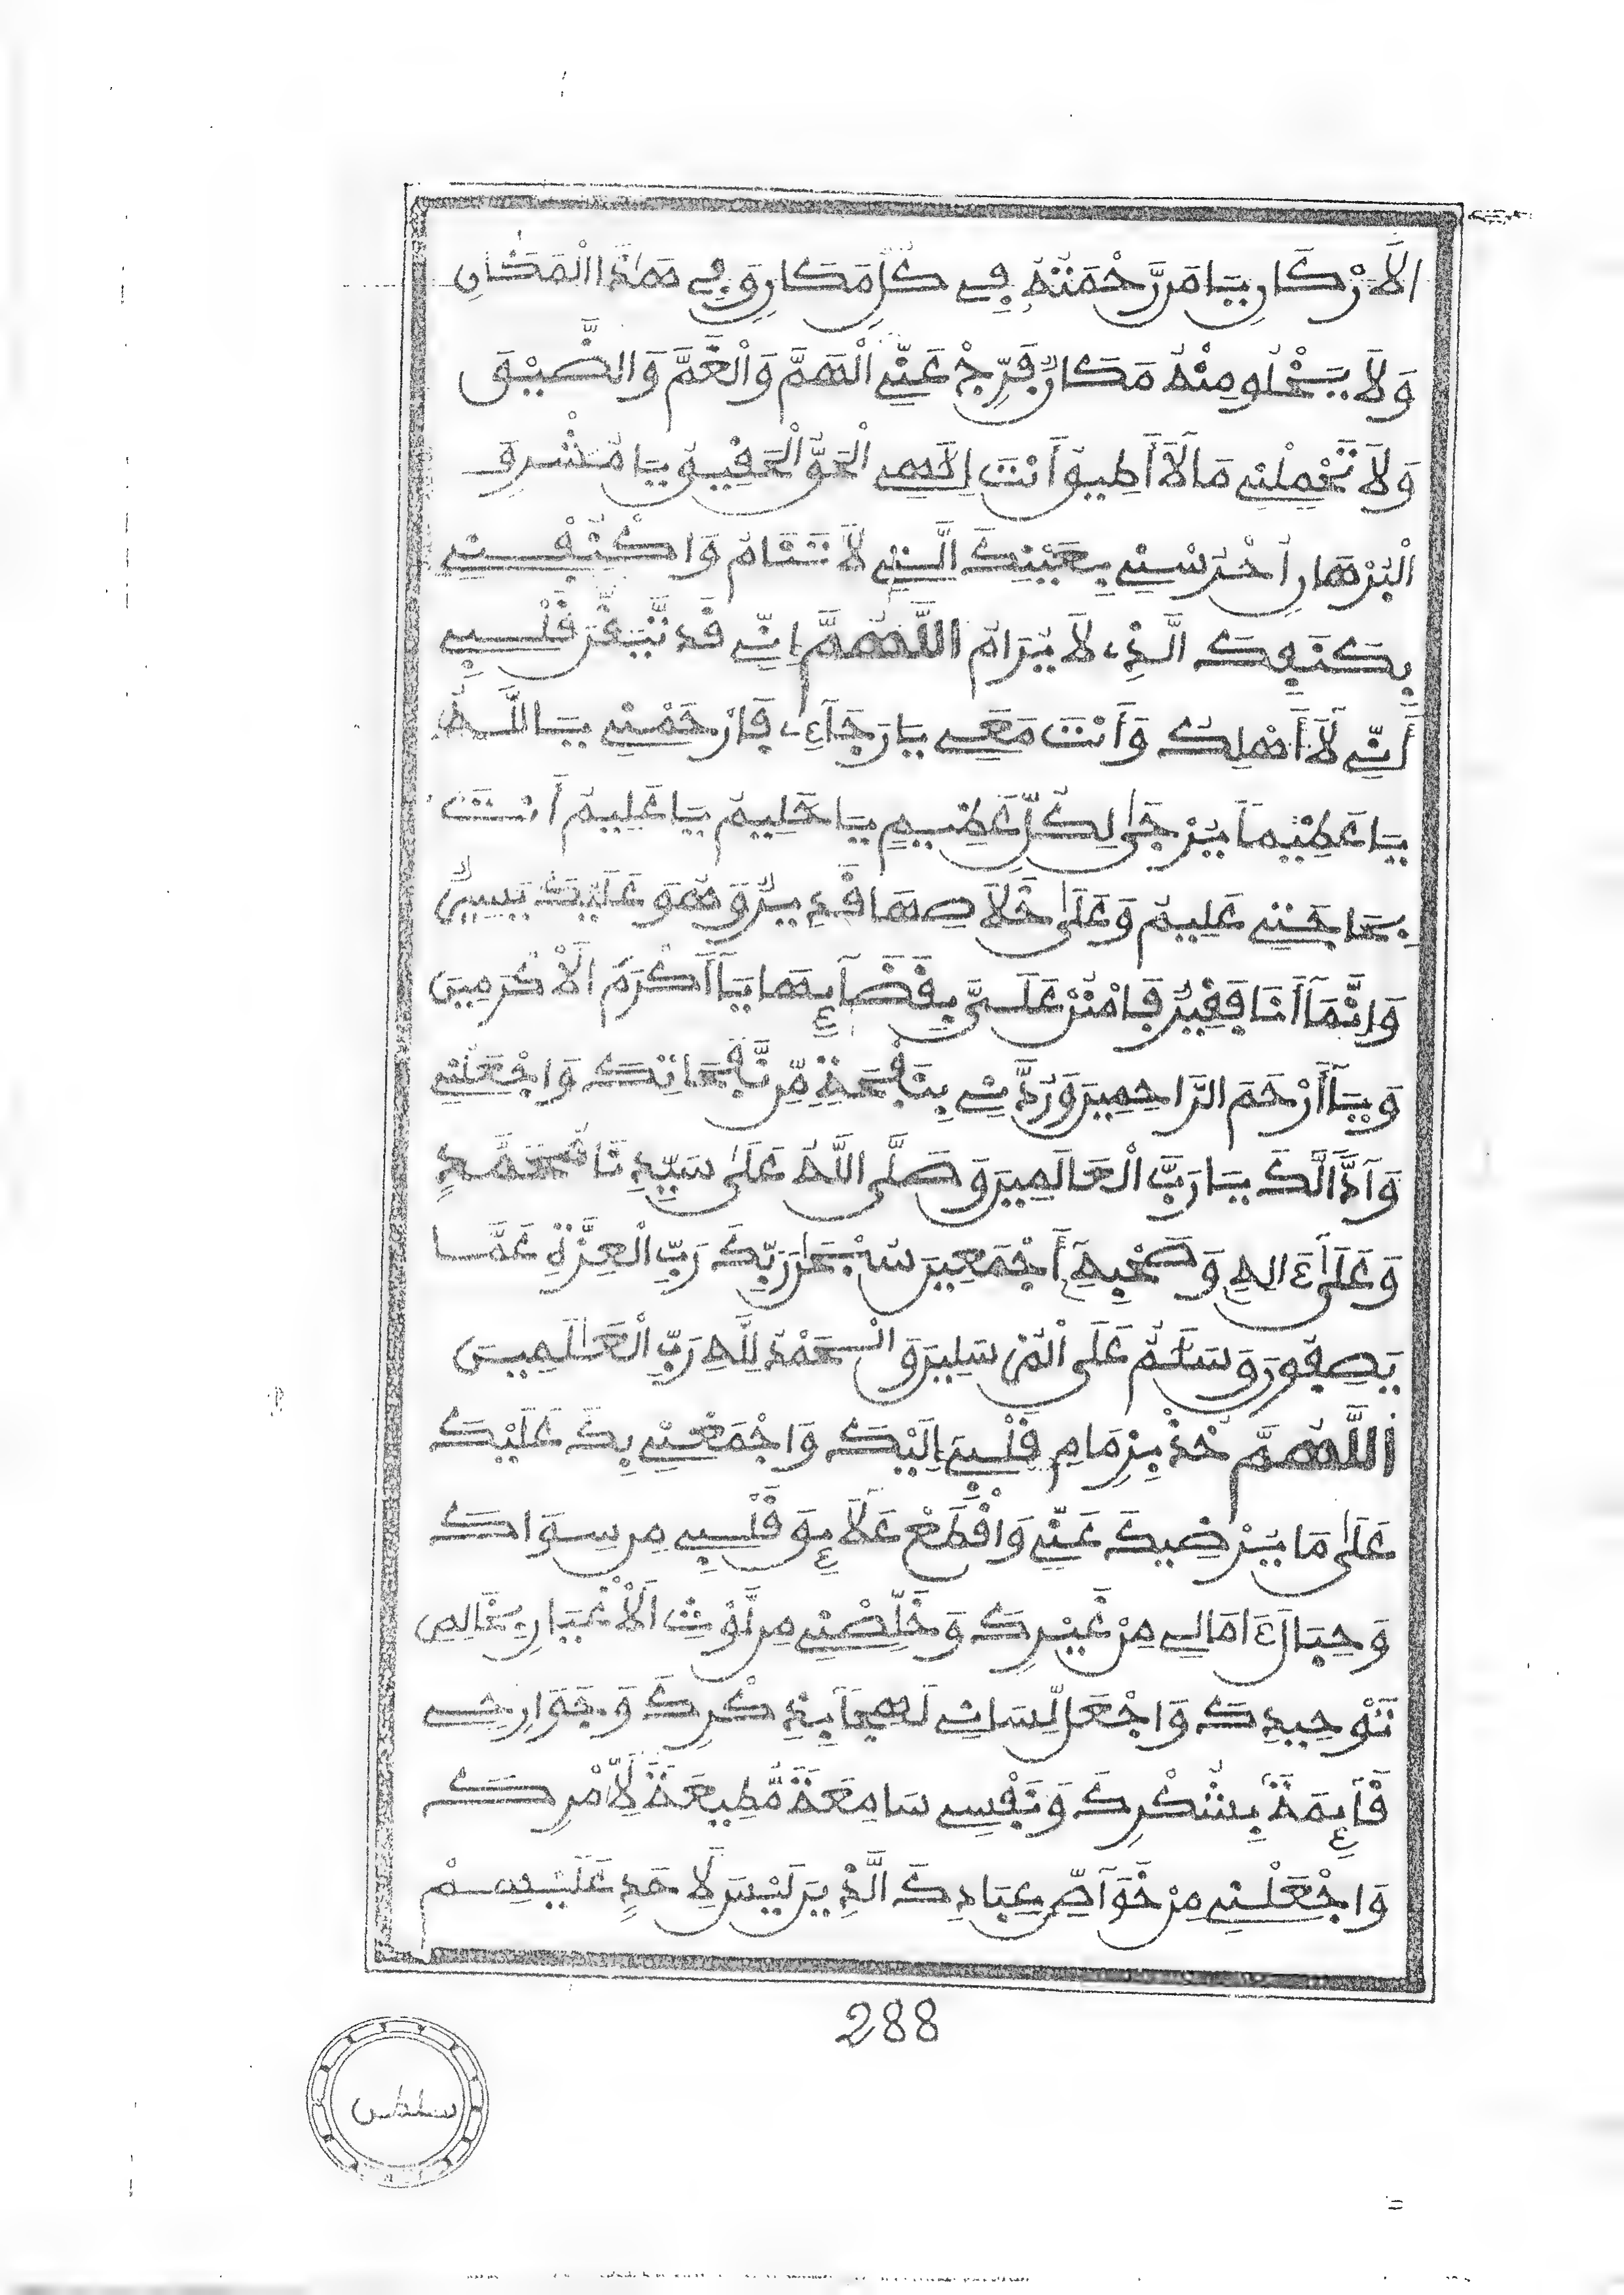 الَارْكَانِ يَا مَن رَّحْمَتُهُ فِي كُلِّ مَكَانٍ وَفِي هَٰذَا الْمَكَانِ
وَلَا يَخْلُو مِنْهُ مَكَانٌ فَرِّجْ عَنِّي الْهَمَّ وَالْغَمَّ وَالضِّيقَ
وَلَا تُحَمِّلْنِي مَا لَا أُطِيقُ أَنْتَ إِلَٰهِي الْحَقُّ الْحَقِيقُ يَا مُشْرِقَ
الْبُرْهَانِ احْرُسْنِي بِعَيْنِكَ الَّتِي لَا تَنَامُ وَاكْنُفْنِي
بِكَنَفِكَ الَّذِي لَا يُرَامُ اللَّهُمَّ إِنِّي قَد تَّيَقَّنَ قَلْبِي
أَنِّي لَا أَهْلِكُ وَأَنْتَ مَعِي يَا رَجَآءِي فَارْحَمْنِي يَا اللَّهُ
يَا عَظِيمًا يُرْجَىٰ لِكُلِّ عَظِيمٍ يَا حَلِيمُ يَا عَلِيمُ أَنْتَ
بِحَاجَتِي عَلِيمٌ وَعَلَىٰ خَلَاصِهَا قَدِيرٌ وَهُوَ عَلَيْكَ يَسِيرٌ
وَإِنَّمَا أَنَا فَقِيرٌ فَامْنُنْ عَلَيَّ بِقَضَآئِهَا يَا أَكْرَمَ الْأَكْرَمِينَ
وَيَا أَرْحَمَ الرَّاحِمِينَ وَرُدَّنِي بِنَفْحَةٍ مِّن نَّفَحَاتِكَ وَاجْعَلْنِي
وَآدًّا لَّكَ يَا رَبَّ الْعَالَمِينَ وَصَلَّى اللَّهُ عَلَىٰ سَيِّدِنَا مُحَمَّدٍ
وَعَلَىٰ ءَالِهِ وَصَحْبِهِ أَجْمَعِينَ سُبْحَٰنَ رَبِّكَ رَبِّ الْعِزَّةِ عَمَّا
يَصِفُونَ وَسَلَٰمٌ عَلَى الْمُرْسَلِينَ وَالْحَمْدُ لِلَّهِ رَبِّ الْعَٰلَمِينَ
اللَّهُمَّ خُذْ بِزِمَامِ قَلْبِي إِلَيْكَ وَاجْمَعْنِي بِكَ عَلَيْكَ
عَلَىٰ مَا يُرْضِيكَ عَنِّي وَاقْطَعْ عَلَآئِقَ قَلْبِي مِن سِوَاكَ
وَحِبَالَ ءَامَالِي مِنْ غَيْرِكَ وَخَلِّصْنِي مِن لَّوْثِ الْأَغْيَارِ بِخَالِصِ
تَوْحِيدِكَ وَاجْعَل لِّسَانِي لَهِجًا بِذِكْرِكَ وَجَوَارِحِي
قَآئِمَةً بِشُكْرِكَ وَنَفْسِي سَامِعَةً مُّطِيعَةً لِّأَمْرِكَ
وَاجْعَلْنِي مِنْ خَوَآصِّ عِبَادِكَ الَّذِينَ لَيْسَ لِأَحَدٍ عَلَيْهِمْ
288